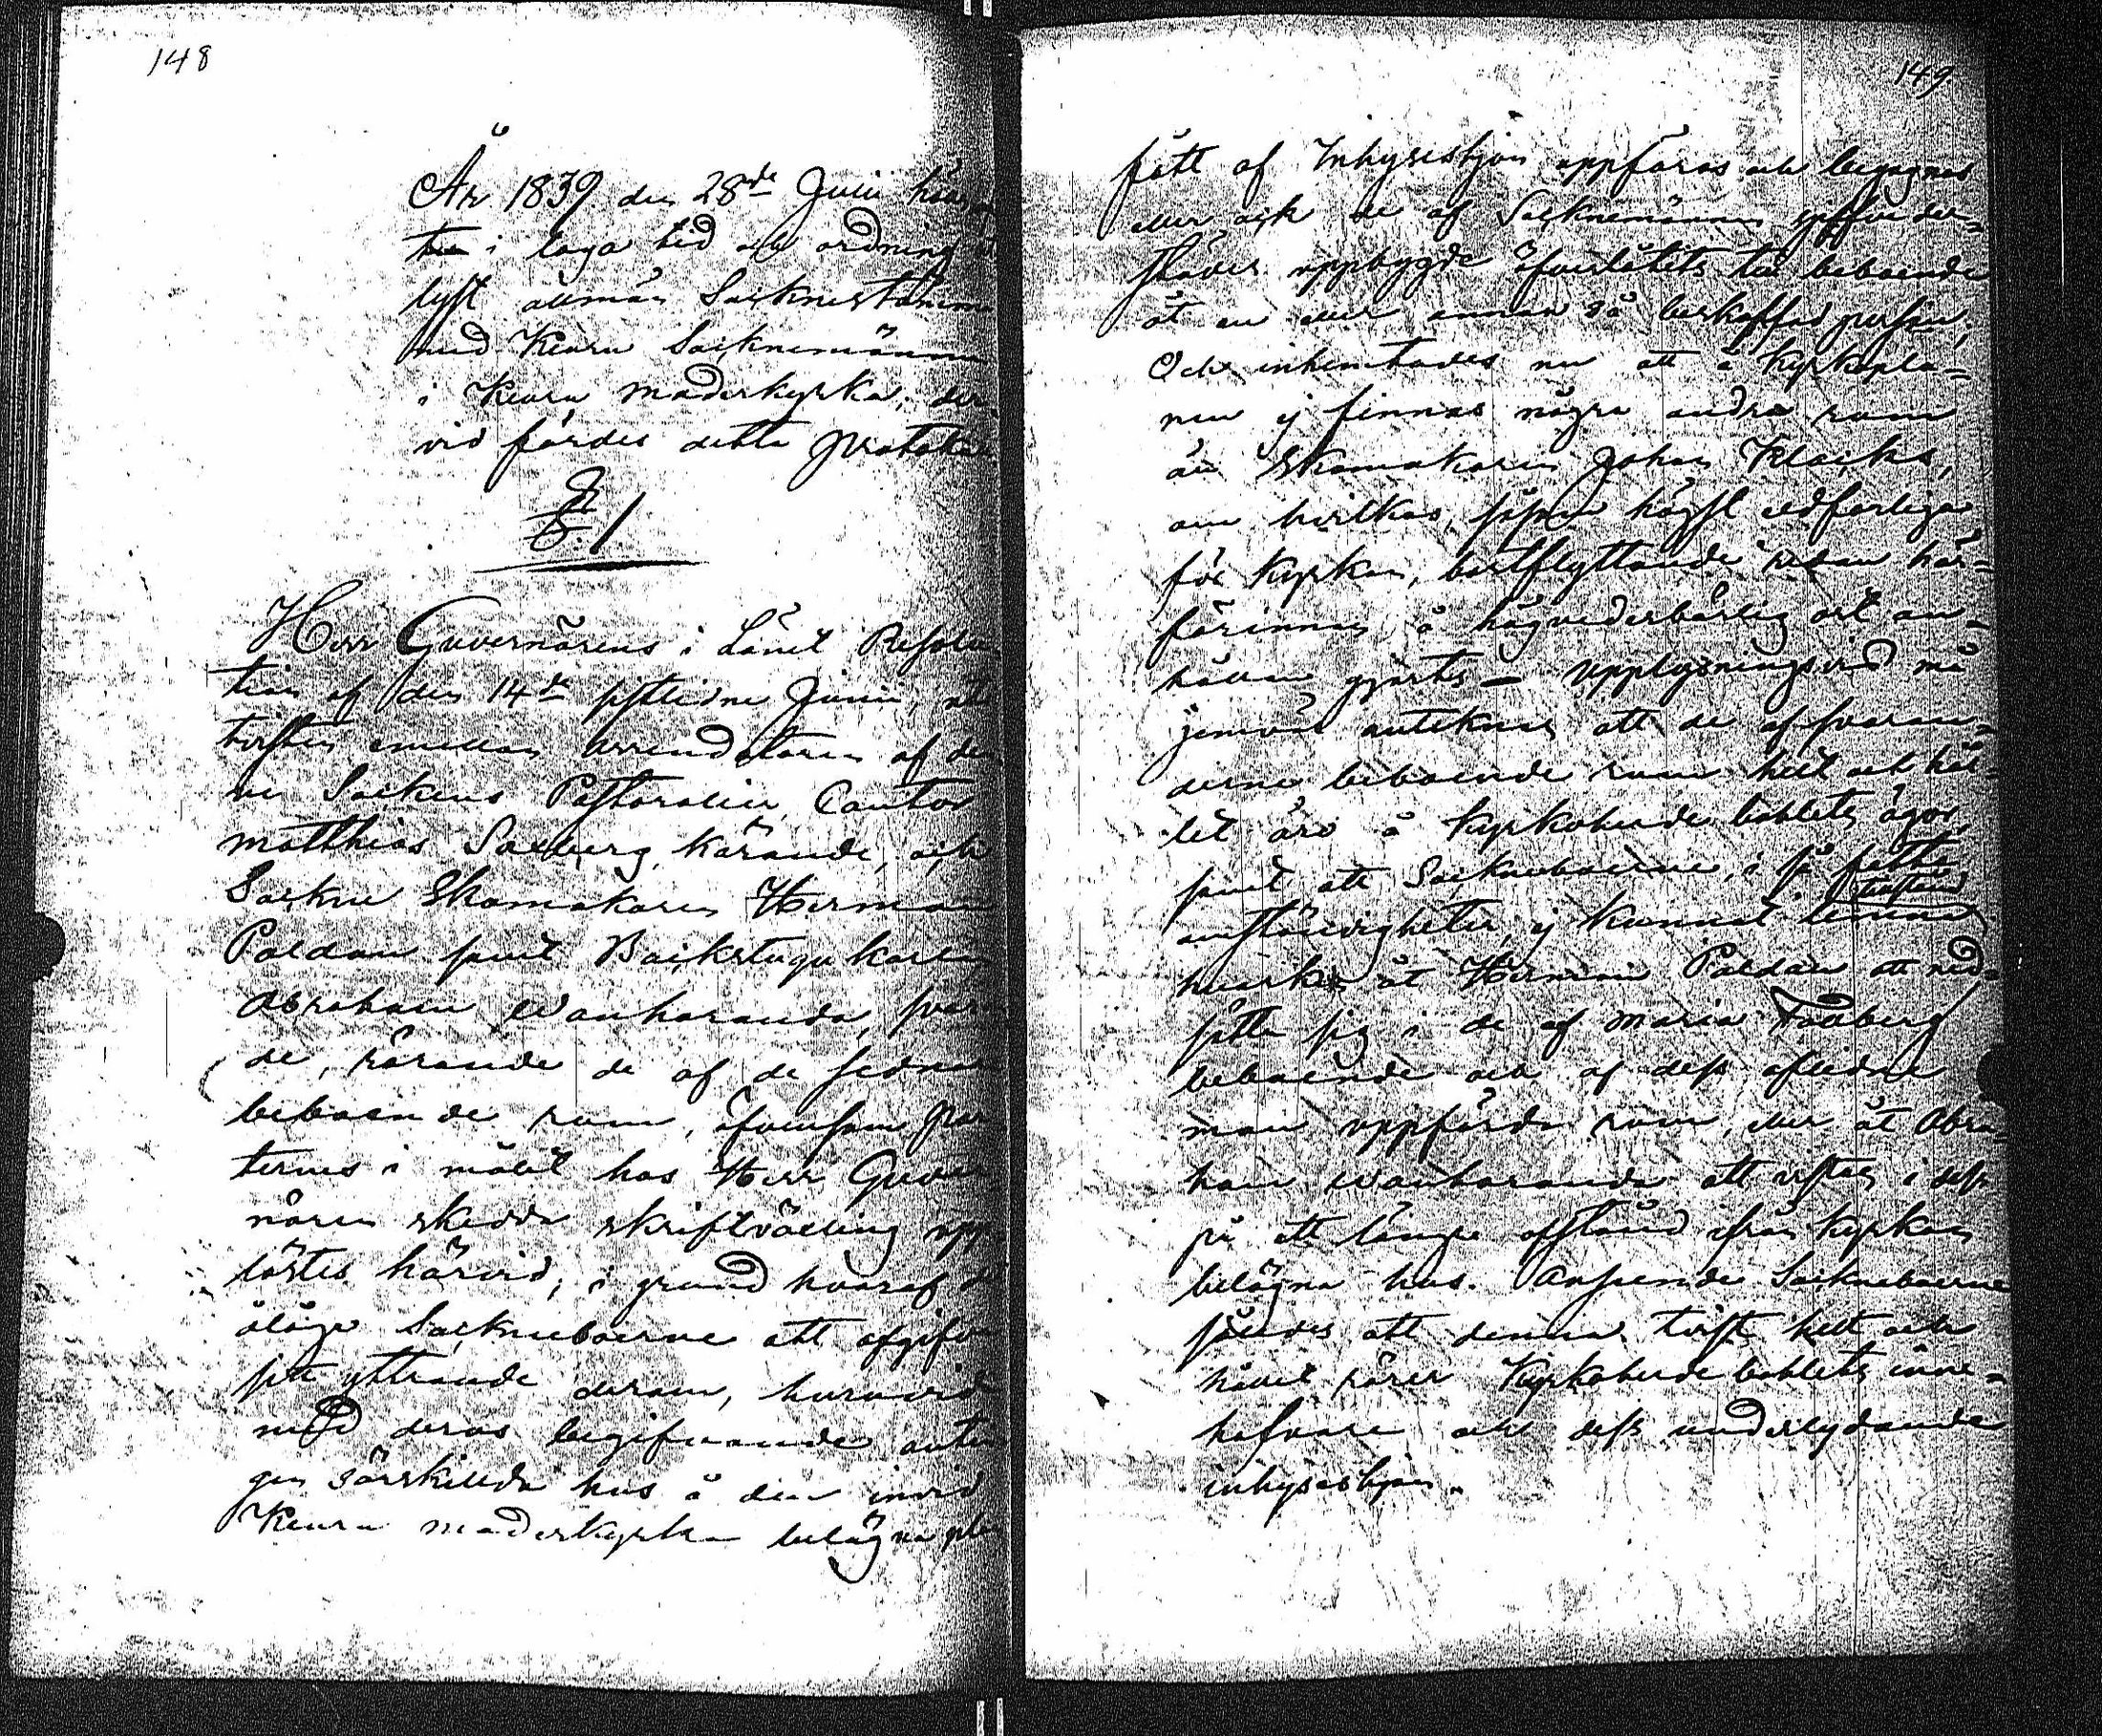 148
År 1839 den 28de Julii hölls
i laga tid och ordning
lyst allmän Socknestämma
med Keuru Socknemännen
i Keuru moderkyrka, der-
vid fördes detta protokoll
§ 1
Herr Guvernörens i Länet Resolu
tion af den 14de sistledne Junii, uti
tvisten emellan Arrendatorn af den
na Sockens Pastoralier, Cantor
Matthias Saxberg, kärande, och
Sockne Skomakaren Herman
Paldan samt Backstugu karlen
Abraham Wanharanda, svar
de, rörande de af de sedna
beboende rum, äfvensom par
ternes i målet hos Herr Guver
nören skedda skriftväxling upp
lästes härvid, i grund hvaraf d
ålåge Sockneboerne att afgifva
sitt yttrande derom, huruvid
med deras begifvande anten
gen särskilda hus å den invid
Keuru moderkyrka belägna pla
149.
fått af Inhyseshjon uppföras och begagnas
eller ock de af Socknemännen
städes uppbygde öfverlåtits till beboende
åt en eller annan så beskaffad person;
Och inhemtades nu att å kyrkopla-
nen ej finnas några andra rum
än Skomakaren Johan Klacks,
om hvilkas, såsom högst eldfarliga
för kyrkan, bortflyttande redan här-
förinnan å högvederbörlig ort an-
hållan gjorts – Upplysningsvid må
jemväl anteknas att de af svaran-
derne beboende rum helt och hål-
let äro å Kyrkoherde boblets ägor,
samt att Sockneboerne, i så fatta
omständigheter, ej kunnat lemna tillstånd
hvarken åt Herman Paldan att ned-
sätta sig i de af Maria Fallberg
beboende och af dess aflidne
man uppförda rum, eller åt Abra-
ham Wanharanda att vistas i dess
på ett längre afstånd ifrån kyrkan
belägna hus. Ansende Sockneboerne
således att denna tvist helt och
hållet rörer Kyrkoherde boblets inne-
hafvare och dess underlydande
inhyseshjon.